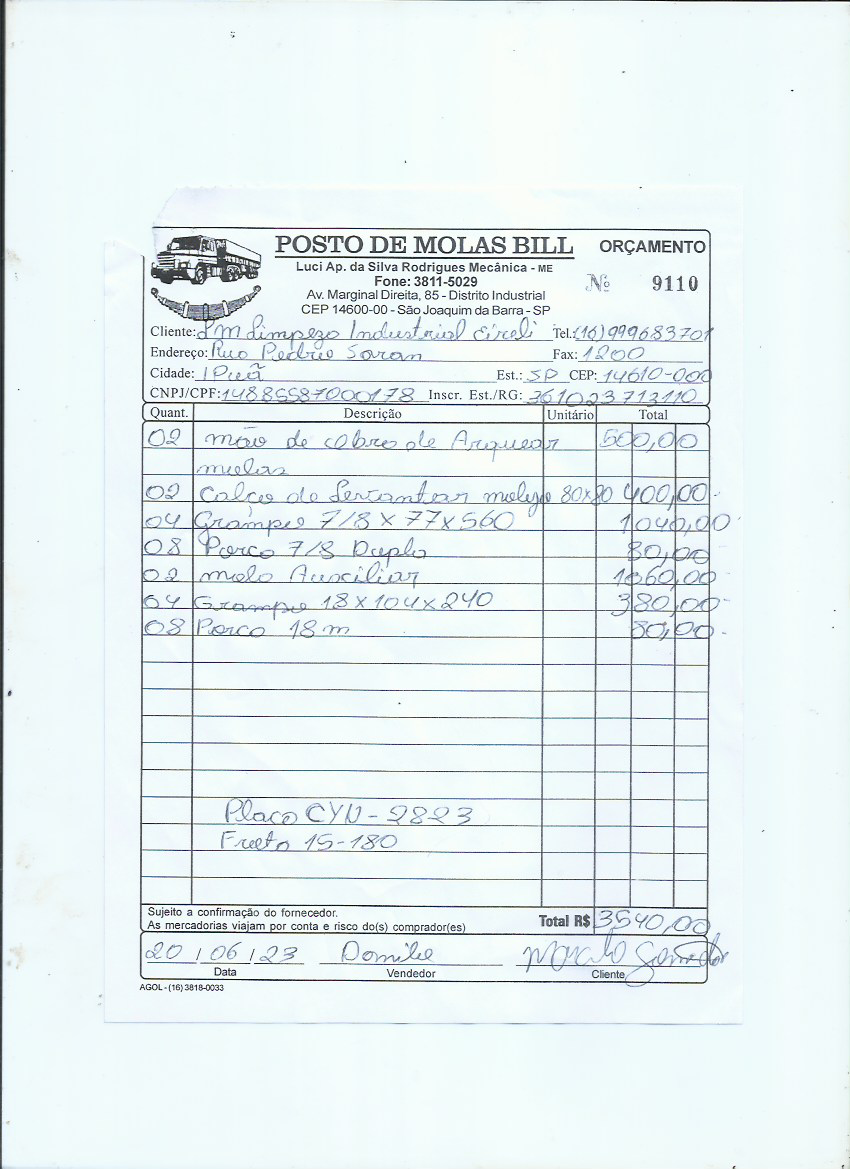 POSTO DE MOLAS BILL ORÇAMENTO
Luci Ap. da Silva Rodrigues Mecânica - ME
Fone: 3811-5029
Nº 9110
Av. Marginal Direita, 85 - Distrito Industrial
CEP 14600-00 - São Joaquim da Barra - SP
Cliente: LM Limpeza Industrial Eireli Tel.: (16) 999683701
Endereço: Rua Pedro Saran Fax: 1200
Cidade: IPuã Est.: SP CEP: 14610-000
CNPJ/CPF: 14885587000178 Inscr. Est./RG: 361023713110
Quant. Descrição Unitário Total
02 mão de obra de Arquear 500,00
molas
02 Calço de Levantar molejo 80x80 400,00
04 Grampo 7/8 x 77 x 560 1040,00
08 Porca 7/8 Dupla 80,00
02 mola Auxiliar 1060,00
04 Grampo 18 x 104 x 240 380,00
08 Porca 18 m 80,00
Placa CYN - 2823
15-180
Sujeito a confirmação do fornecedor.
As mercadorias viajam por conta e risco do(s) comprador(es)
Total R$ 3540,00
20 / 06 / 23
Data Vendedor Cliente
AGOL - (16) 3818-0033